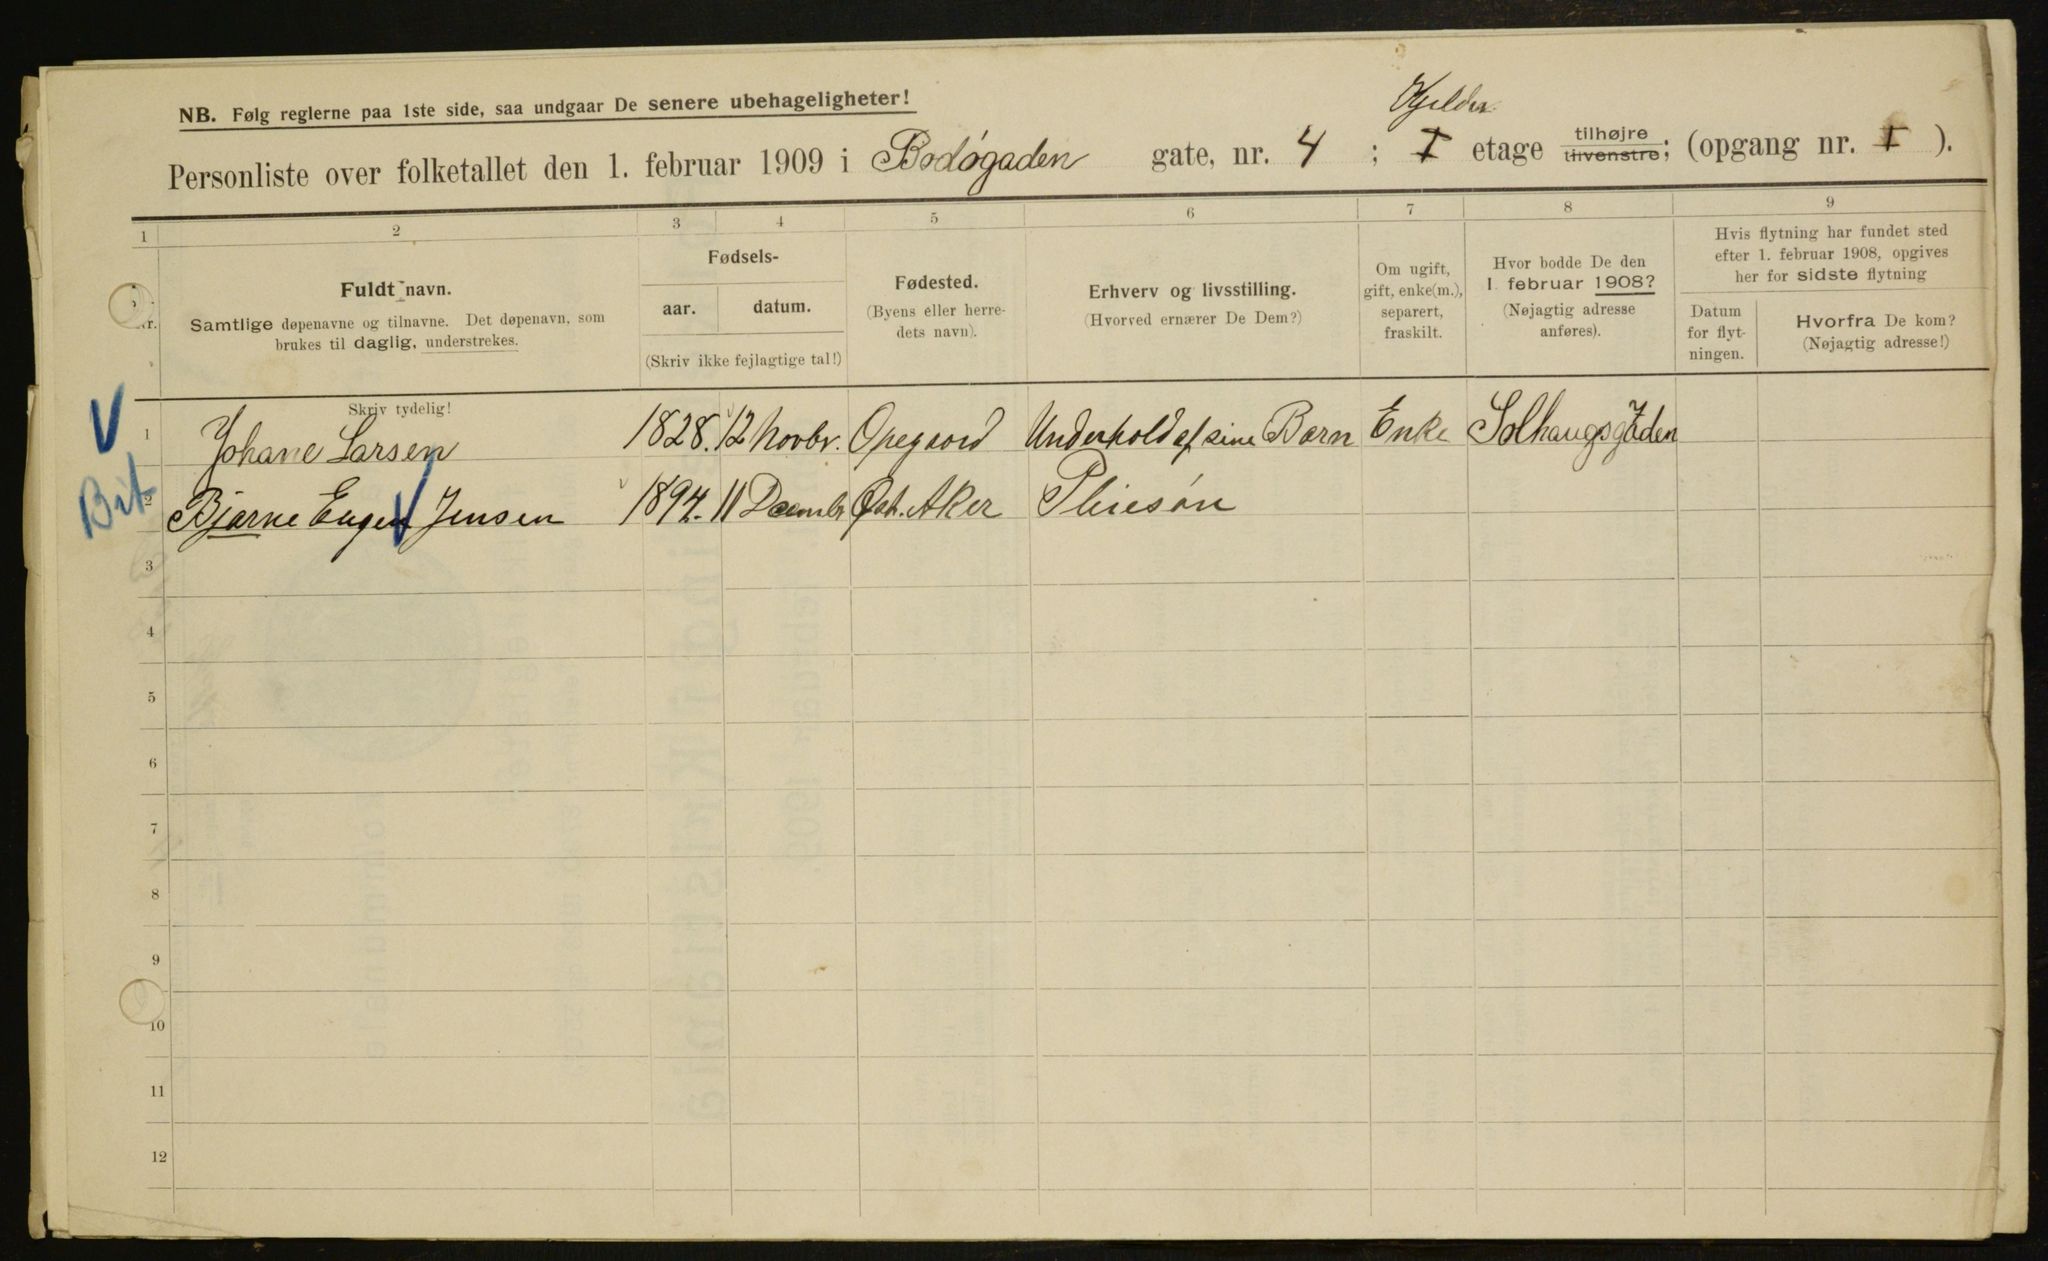 NB. Følg reglerne paa 1ste side, saa undgaar De senere ubehageligheter!
Kjelder
Personliste over folketallet den 1. februar 1909 i Bodøgaden gate, nr. 4 ; I etage tilhøjre tilvenstre; (opgang nr. I ).
1 2 3 4 5 6 7 8 9
Fuldt navn.
Samtlige døpenavne og tilnavne. Det døpenavn, som
brukes til daglig, understrekes.
Skriv tydelig!
Fødsels-
aar. datum.
(Skriv ikke fejlagtige tal!)
Fødested.
(Byens eller herre-
dets navn).
Erhverv og livsstilling.
(Hvorved ernærer De Dem?)
Om ugift,
gift, enke(m.),
separert,
fraskilt.
Hvor bodde De den
1. februar 1908?
(Nøjagtig adresse
anføres).
Hvis flytning har fundet sted
efter 1. februar 1908, opgives
her for sidste flytning
Datum
for flyt-
ningen.
Hvorfra De kom?
(Nøjagtig adresse!)
V
1 Johane Larsen 1828. 12 Novbr. Opegaard Underhold af sine Barn Enke Solhaugsgaden
2 Bjarne Eugen Jensen 1894. 11 Decembr Øst. Aker Pleiesøn
3
4
5
6
7
8
9
10
11
12